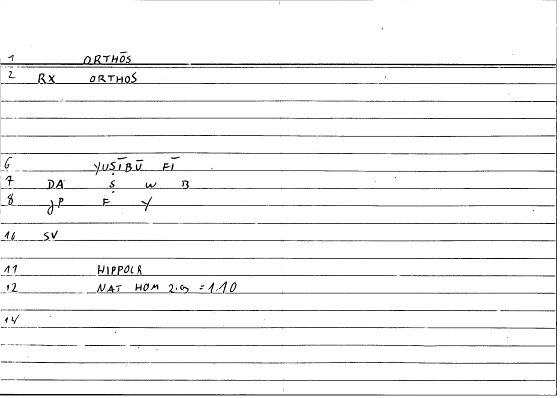 1 ORTHŌS
2 RX ORTHOS
6 YUṢĪBŪ FĪ
7 DA Ṣ W B
8 JP F Y
16 SV
11 HIPPOCR
12 NAT HOM 2.09 = 1.10
14